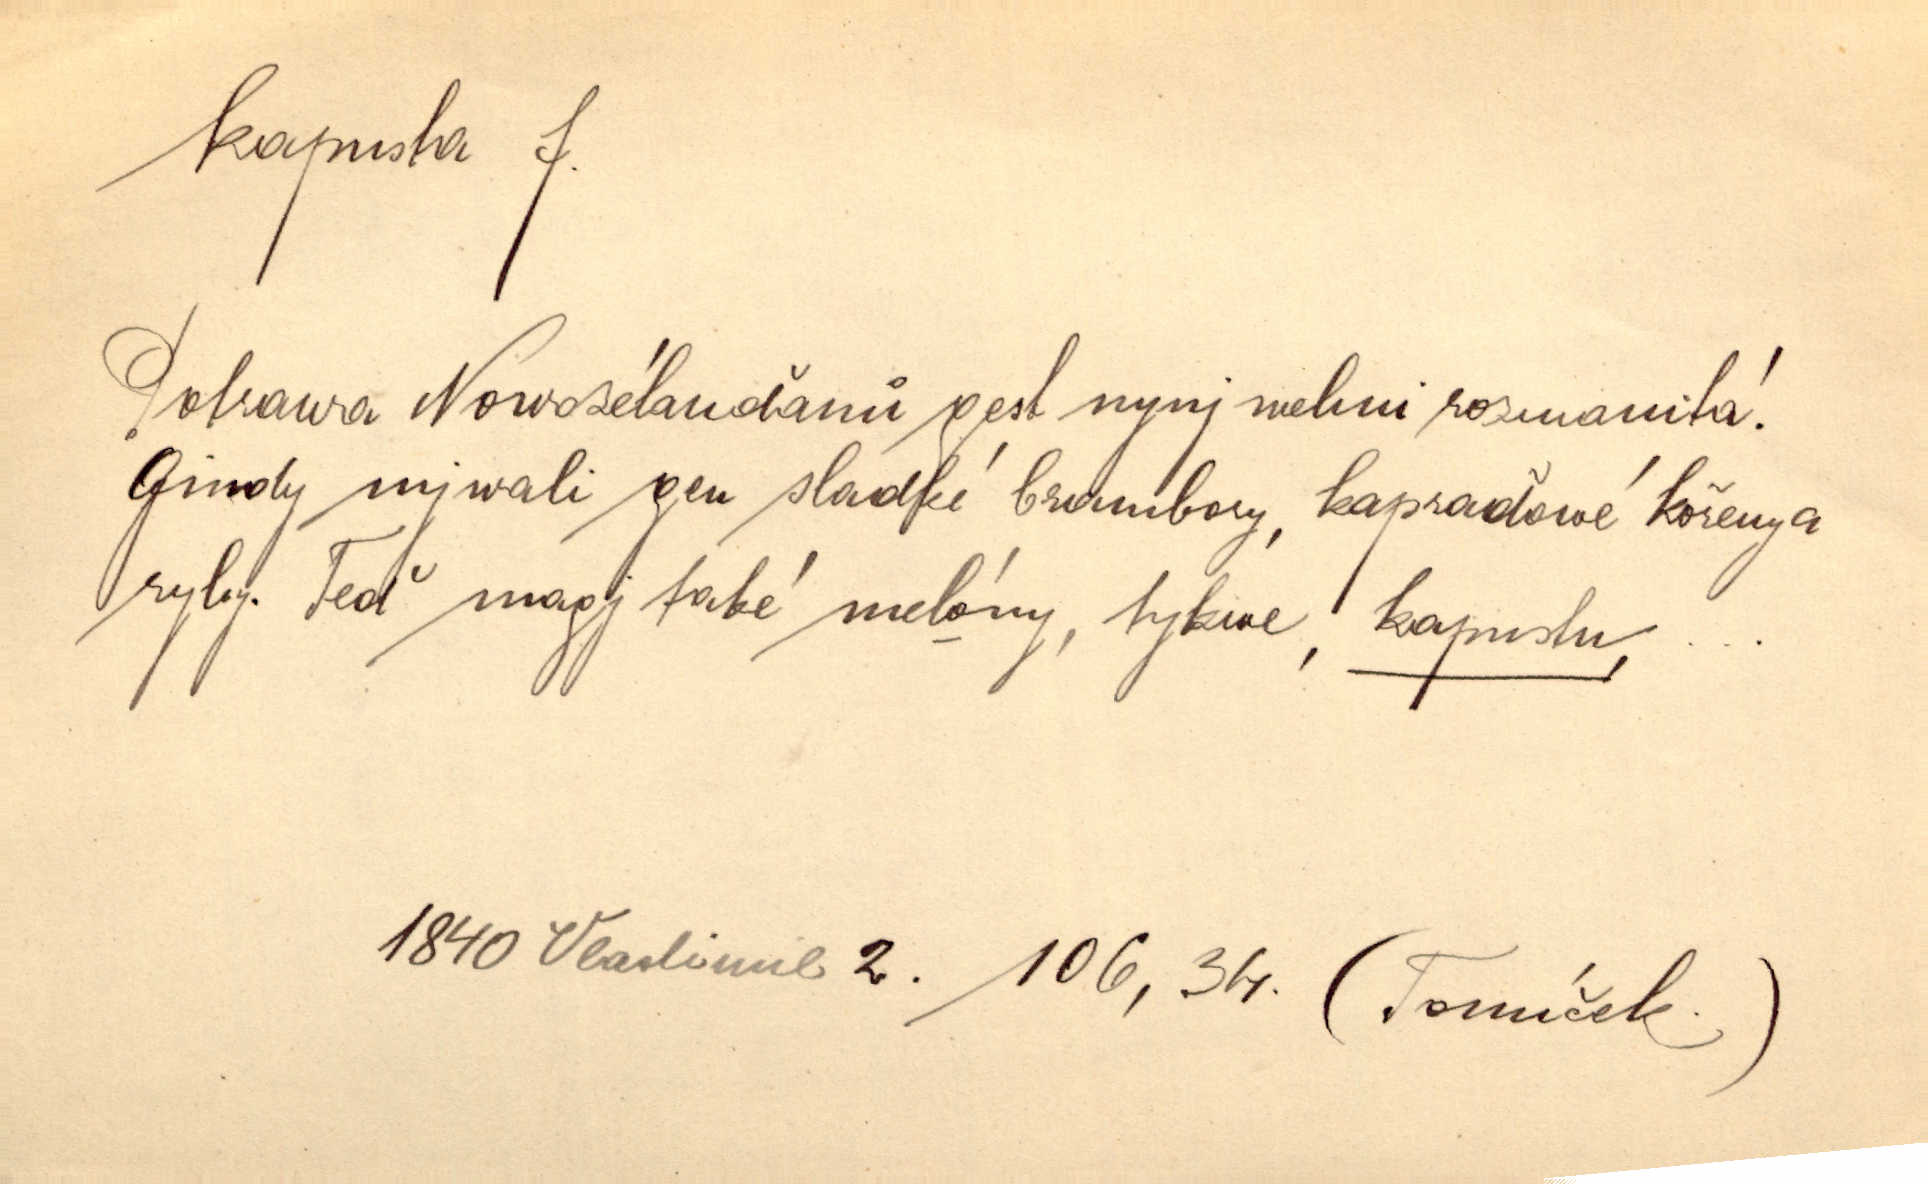 kapusta f.
Potrawa Nowozélanďanů gest nynj welmi rozmanitá.
Gindy mjwali gen sladké brambory, kapraďowé kořeny a
ryby. Teď magj také melóny, tykwe, kapustu, ...
1840 Vlastimil 2. 106, 34. (Tomíček.)